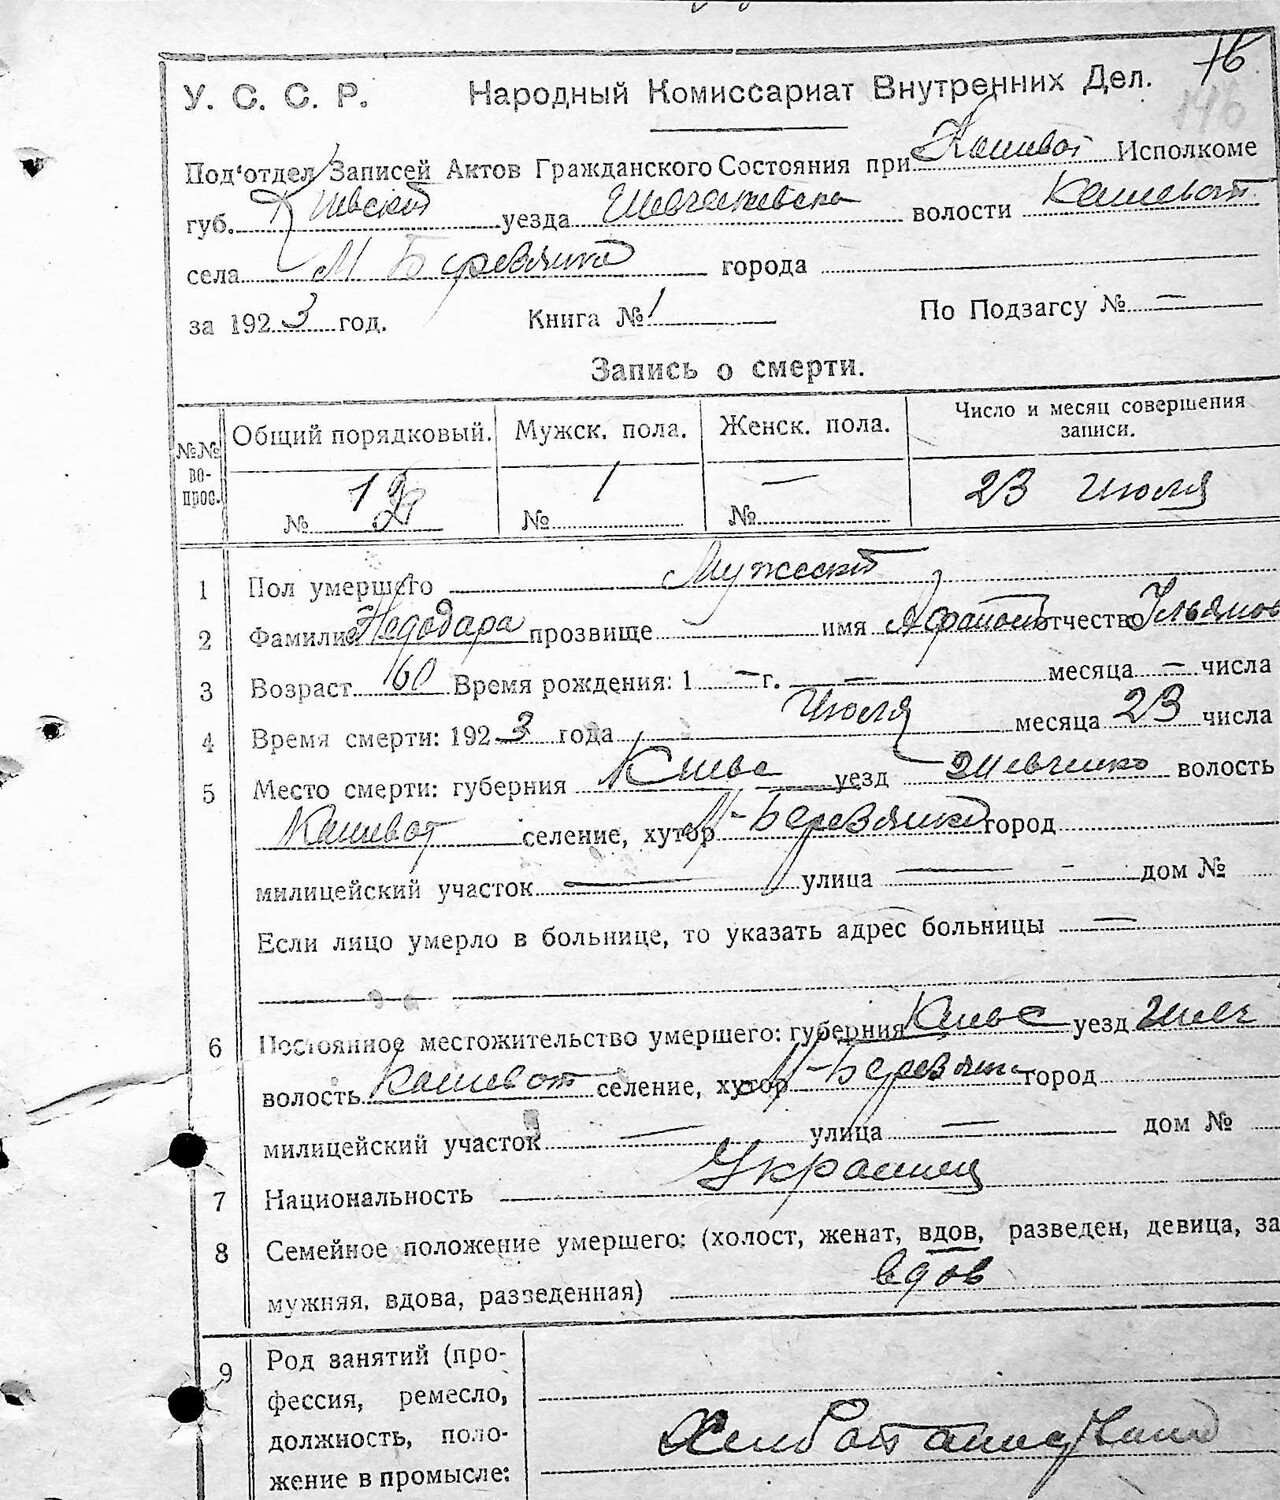 76
146
У. С. С. Р. Народный Комиссариат Внутренних Дел.
Под'отдел Записей Актов Гражданского Состояния при Кашеват Исполкоме
губ. Киевской уезда Шевченковска волости Кашеват
села М Березянка города
за 1923 год. Книга № 1 По Подзагсу № —
Запись о смерти.
№№ во- прос. Общий порядковый. Мужск. пола. Женск. пола. Число и месяц совершения записи.
№ 1 № 1 № — 23 июля
1 Пол умершего Мужской
2 Фамилия Недодара прозвище имя Афанасий отчество Ульянов
3 Возраст 60 Время рождения: 1 — г. — месяца — числа
4 Время смерти: 1923 года Июля месяца 23 числа
5 Место смерти: губерния Киевс уезд Шевченко волость
Кашеват селение, хутор М-Березянка город
милицейский участок — улица — дом №
Если лицо умерло в больнице, то указать адрес больницы —
6 Постоянное местожительство умершего: губерния Киевс уезд Шевч
волость Кашеват селение, хутор М-Березянка город
милицейский участок — улица — дом №
7 Национальность Украинец
8 Семейное положение умершего: (холост, женат, вдов, разведен, девица, за
мужняя, вдова, разведенная) вдов
9 Род занятий (про-
фессия, ремесло,
должность, поло-
жение в промысле: